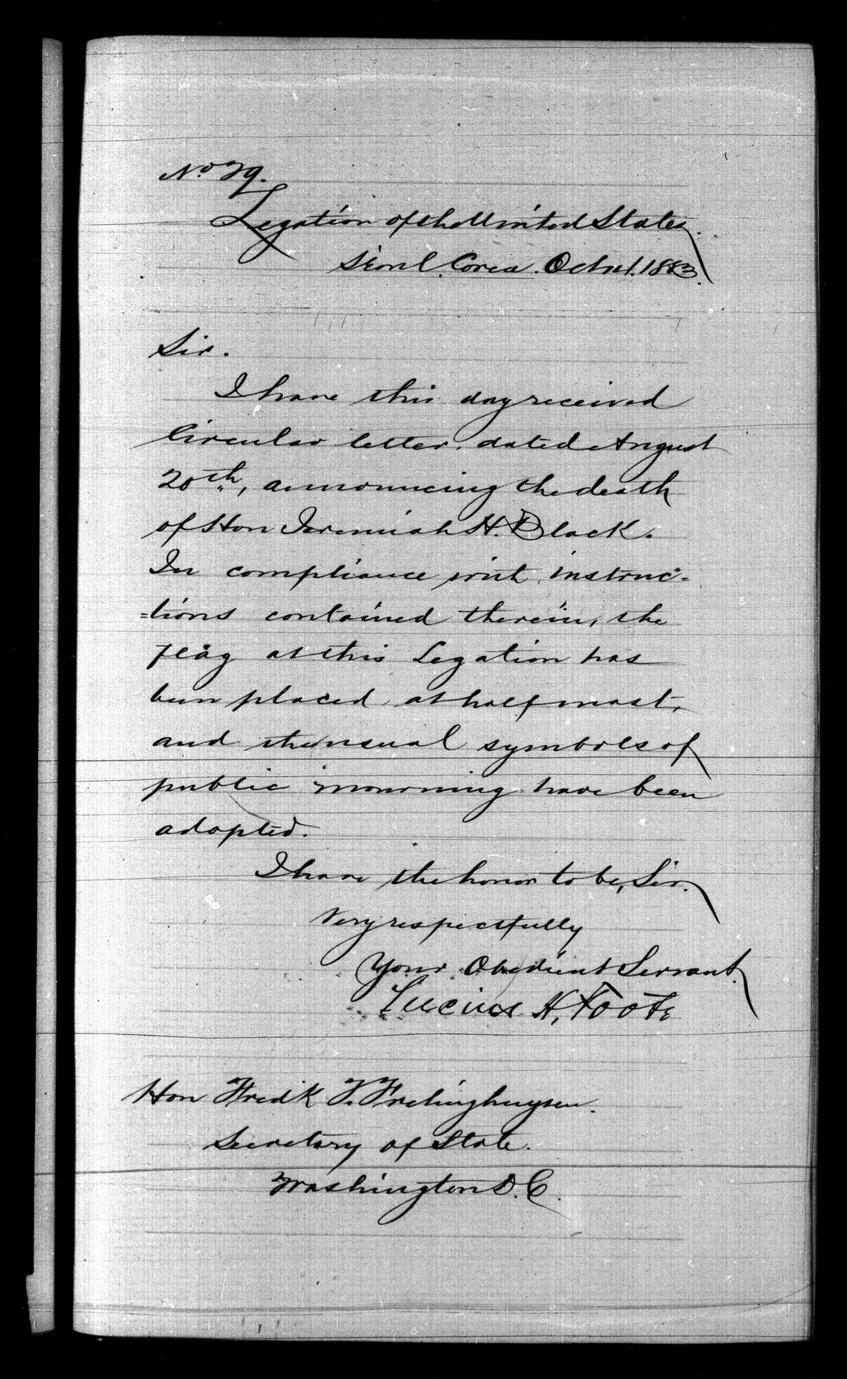 No 29.
Legation of the United States.
Séoul. Corea. Octr 1. 1883.
Sir.
I have this day received
Circular letter, dated August
20th, announcing the death
of Hon Jeremiah H. Black.
In compliance with instruc-
-tions contained therein, the
flag at this Legation has
been placed at half mast,
and the usual symbols of
public mourning have been
adopted.
I have the honor to be, Sir.
Very respectfully
Your Obedient Servant.
Lucius H. Foote
Hon Fredk T. Frelinghuysen.
Secretary of State.
Washington D.C.